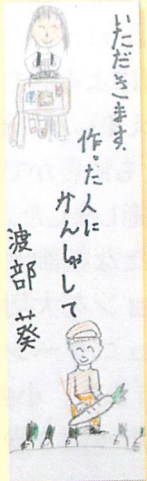 いただきます、
作った人に
かんしゃして
渡部葵